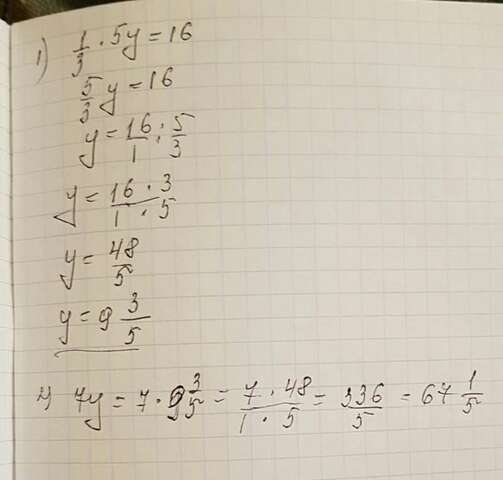 1) 1/3 · 5y = 16
5/3 y = 16
y = 16/1 : 5/3
y = 16 · 3 / 1 · 5
y = 48/5
y = 9 3/5
2) 7y = 7 · 9 3/5 = 7 · 48 / 1 · 5 = 336/5 = 67 1/5